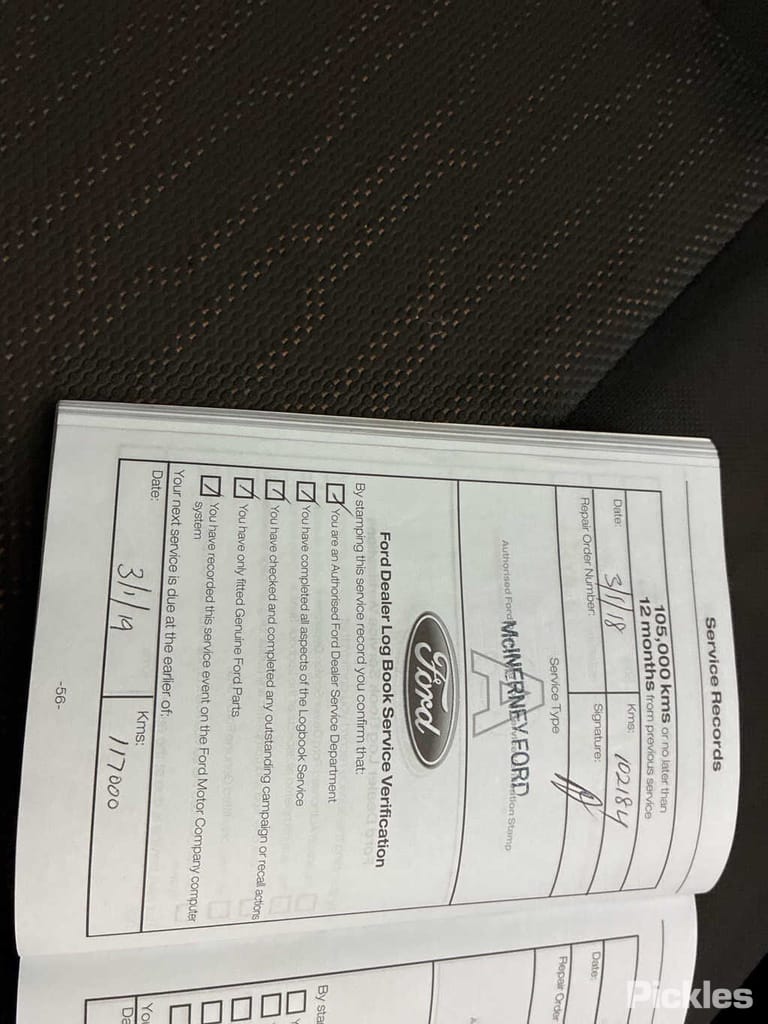 Service Records
105,000 kms or no later than
12 months from previous service
Date: 3/1/18 Kms: 102184
Repair Order Number: Signature:
Service Type
A
McINERNEY FORD
Authorised Ford Stamp
Ford
Ford Dealer Log Book Service Verification
By stamping this service record you confirm that:
You are an Authorised Ford Dealer Service Department
You have completed all aspects of the Logbook Service
You have checked and completed any outstanding campaign or recall actions
You have only fitted Genuine Ford Parts
You have recorded this service event on the Ford Motor Company computer
system
Your next service is due at the earlier of:
Date: 3/1/19 Kms: 117000
-56-
Date:
Repair Order
By sta
Yo
Da
Pickles